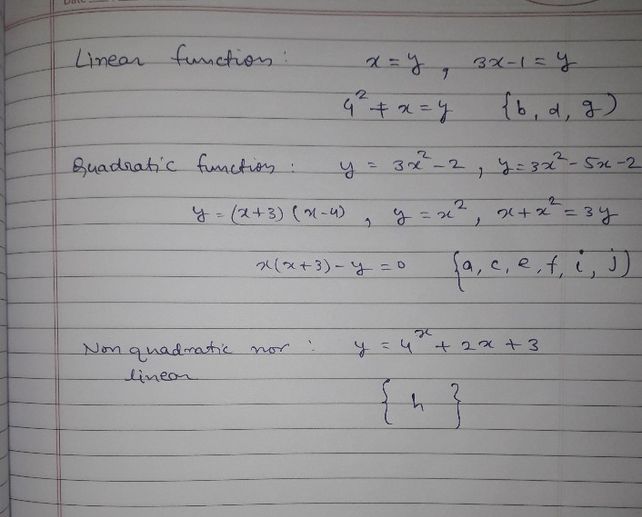 Date
Linear function : x = y , 3x-1 = y
4² + x = y {b, d, g)
Quadratic function : y = 3x²-2 , y = 3x²-5x-2
y = (x+3) (x-4) , y = x² , x+x² = 3y
x(x+3) - y = 0 {a, c, e, f, i, j)
Non quadratic nor : y = 4ˣ + 2x + 3
linear
{ h }